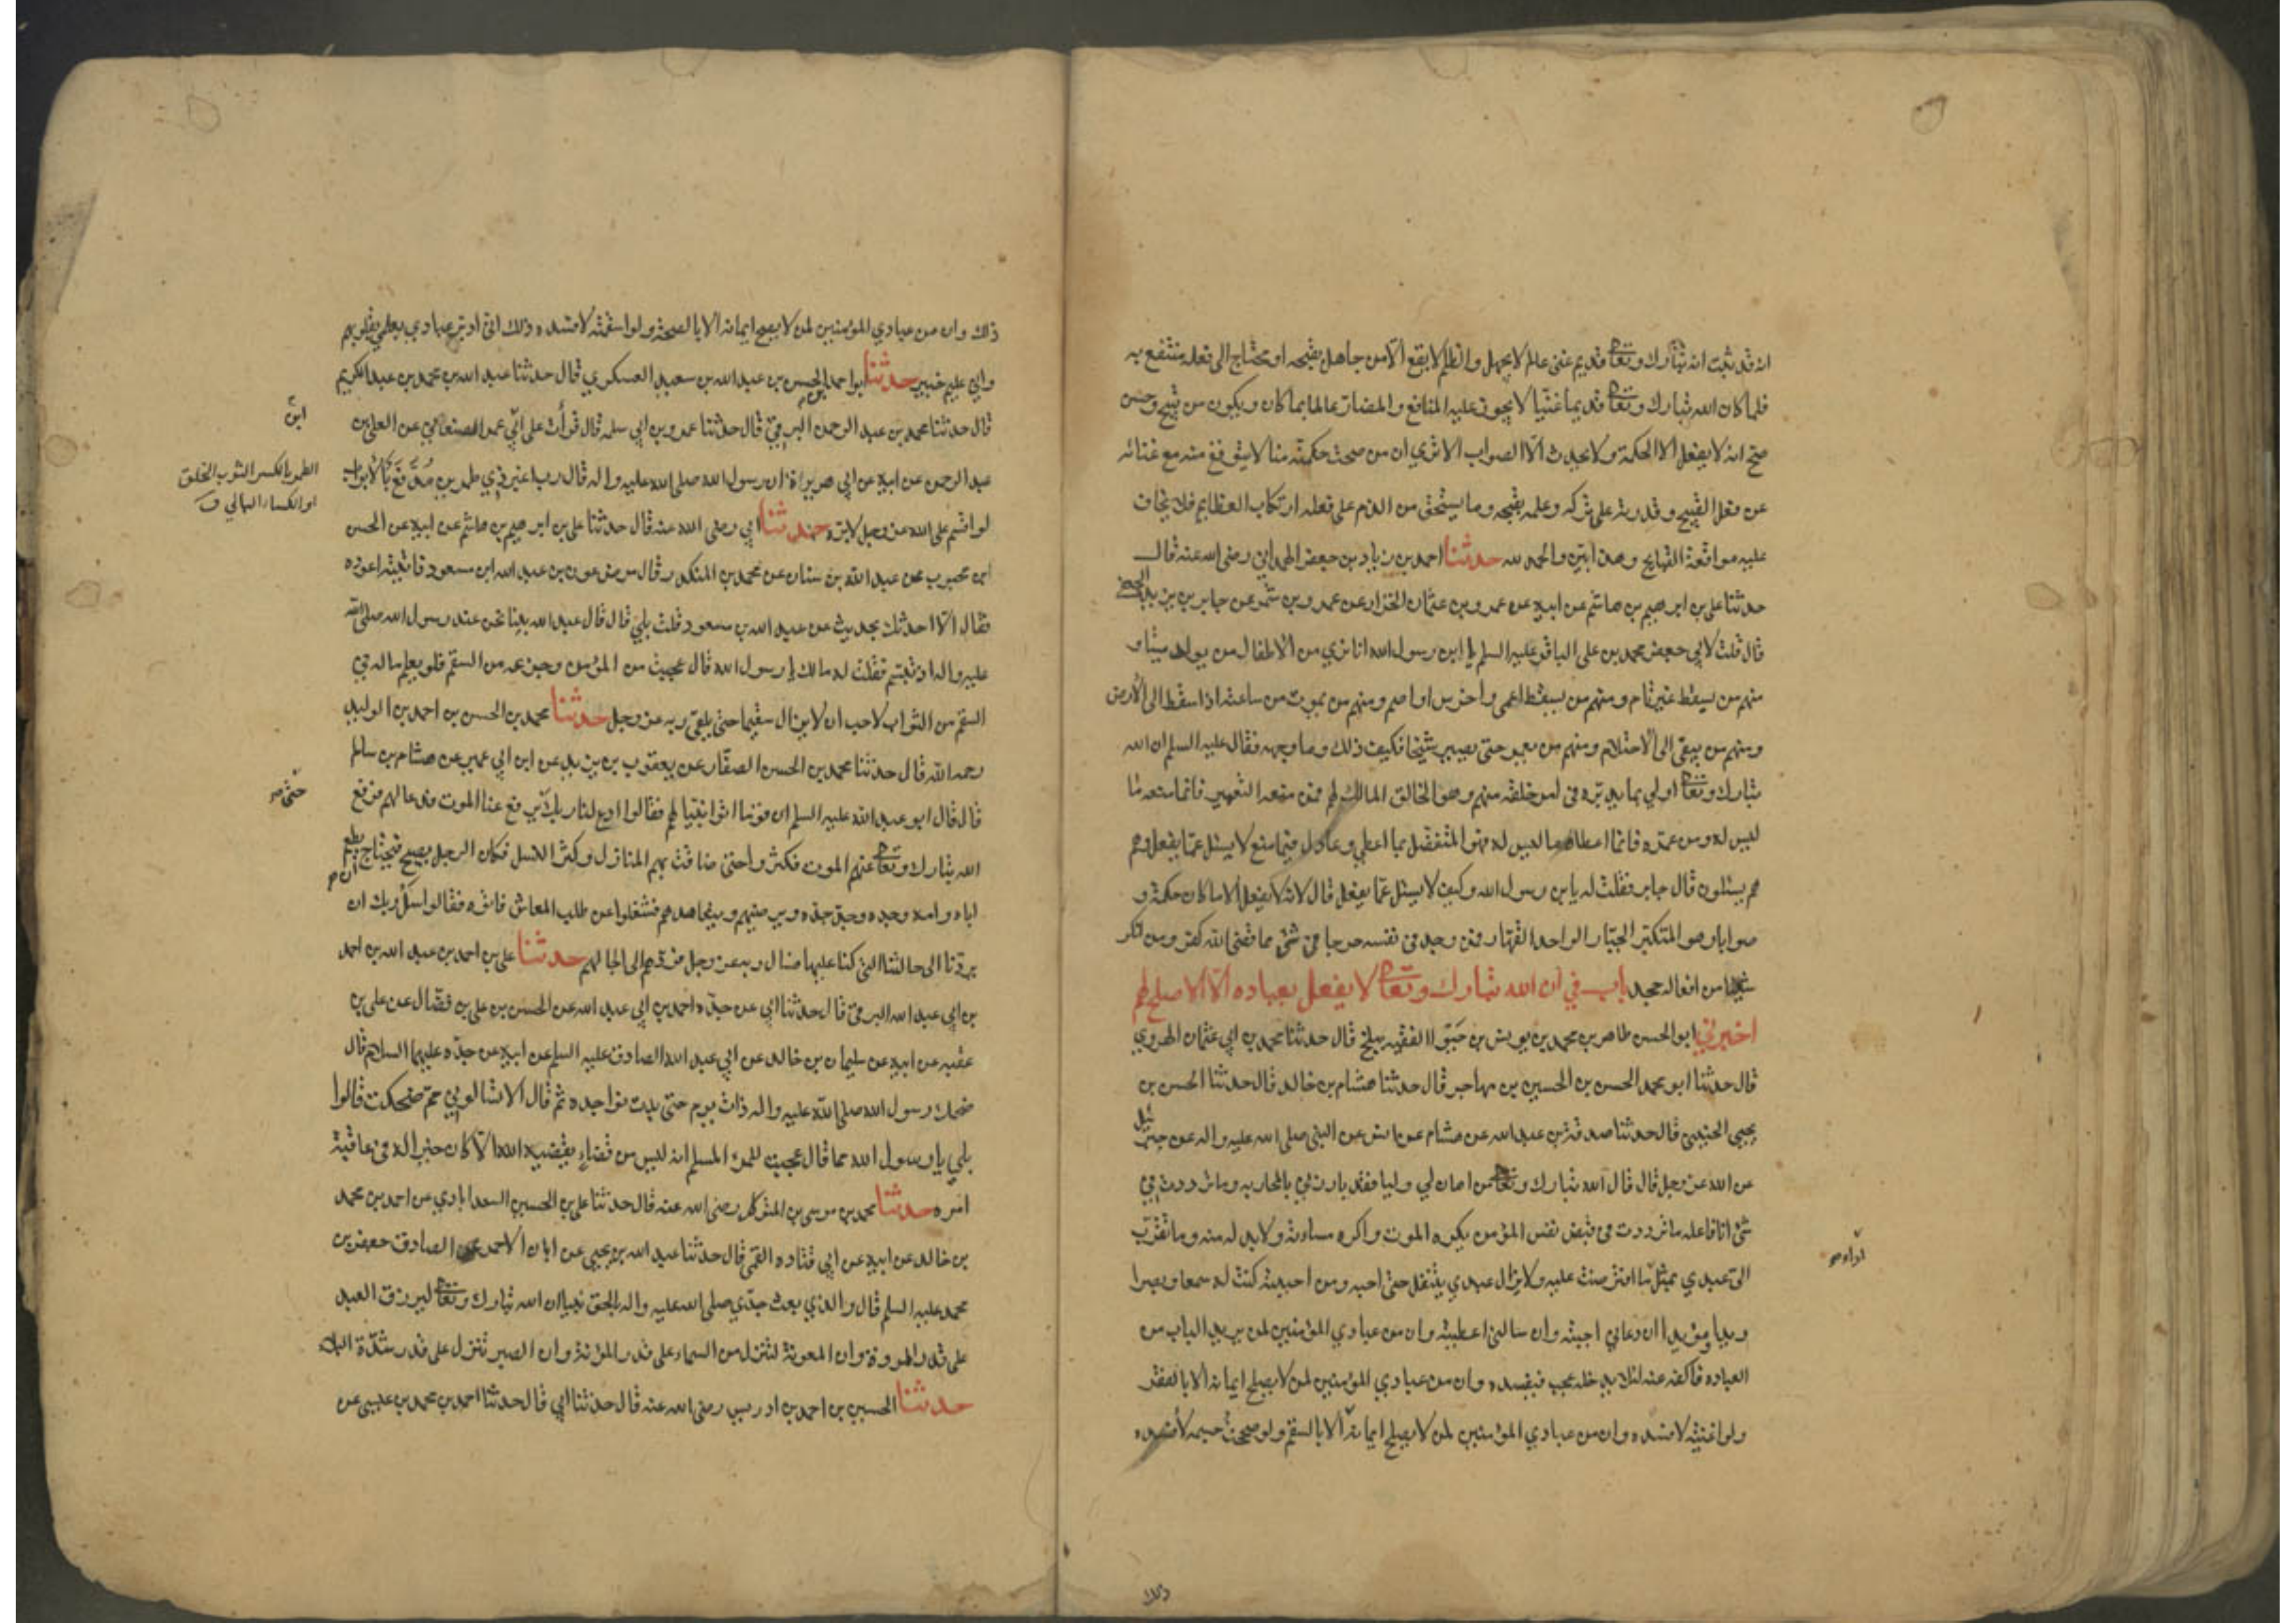 انه قد ثبت انه تبارك وتعالى قديم غني عالم لا يجهل والظلم لا يقع الا من جاهل بقبحه او محتاج الى فعله منتفع به
فلما كان الله تبارك وتعالى قديما غنيا لا يجوز عليه المنافع والمضار عالما بما كان ويكون من قبيح وحسن
صح انه لا يفعل الا الحكمة ولا يحدث الا الصواب الا ترى ان من صحت حكمته منا لا يتوقع منه مع غنائه
عن فعل القبيح وقدرته على تركه وعلمه بقبحه وما يستحق من الذم على فعله ارتكاب العظايم فلا يخاف
عليه مواقعة القبايح وهذا بين والحمد لله حدثنا احمد بن زياد بن جعفر الهمداني رضى الله عنه قال
حدثنا علي بن ابرهيم بن هاشم عن ابيه عن عمرو بن عثمان الخزاز عن عمرو بن شمر عن جابر بن يزيد الجعفي
قال قلت لابي جعفر محمد بن علي الباقر عليه السلم يا ابن رسول الله انا نرى من الاطفال من يولد ميتا و
منهم من يسقط غير تام ومنهم من يسقط اعمى واخرس او اصم ومنهم من يموت من ساعته اذا سقط الى الارض
ومنهم من يبقى الى الاحتلام ومنهم من يعمر حتى يصير شيخا فكيف ذلك وما وجهه فقال عليه السلم ان الله
تبارك وتعالى اولى بما يدبره من امر خلقه منهم وهو الخالق المالك لهم فمن منعه التعمير فانما منعه ما
ليس له ومن عمره فانما اعطاه ما ليس له فهو المتفضل بما اعطى وعادل فيما منع لا يسئل عما يفعل وهم
هم يسئلون قال جابر فقلت له يا بن رسول الله وكيف لا يسئل عما يفعل قال لانه لا يفعل الا ما كان حكمة و
صوابا وهو المتكبر الجبار الواحد القهار فمن وجد في نفسه حرجا في شئ مما قضى الله كفر ومن انكر
شيئا من افعاله جحد باب في ان الله تبارك وتعالى لا يفعل بعباده الا الاصلح لهم
اخبرني ابو الحسن طاهر بن محمد بن يونس بن حيوة الفقيه ببلخ قال حدثنا محمد بن ابي عثمان الهروي
قال حدثنا ابو محمد الحسن بن الحسين بن مهاجر قال حدثنا هشام بن خالد قال حدثنا الحسن بن
يحيى الحنيني قال حدثنا صدقة بن عبد الله عن هشام عن انس عن النبي صلى الله عليه واله عن جبرئيل
عن الله عز وجل قال قال الله تبارك وتعالى من اهان لي وليا فقد بارزني بالمحاربه وما ترددت في
شئ انا فاعله ما ترددت في قبض نفس المؤمن يكره الموت واكره مساءته ولا بد له منه وما تقرب
الي عبدي بمثل ما افترضت عليه ولا يزال عبدي يتنفل حتى احبه ومن احببته كنت له سمعا وبصرا
ويدا ومؤيدا ان دعاني اجبته وان سالني اعطيته وان من عبادي المؤمنين لمن يريد الباب من
العباده فاكفه عنه لئلا يدخله عجب فيفسده وان من عبادي المؤمنين لمن لا يصلح ايمانه الا بالفقر
ولو اغنيته لافسده وان من عبادي المؤمنين لمن لا يصلح ايمانه الا بالسقم ولو صححت جسمه لافسده
ذلك
ذلك وان من عبادي المؤمنين لمن لا يصلح ايمانه الا بالصحة ولو اسقمته لافسده ذلك اني ادبر عبادي بعلمي بقلوبهم
واني عليم خبير حدثنا ابو احمد الحسن بن عبد الله بن سعيد العسكري قال حدثنا عبد الله بن محمد بن عبد الكريم
قال حدثنا محمد بن عبد الرحمن البرقي قال حدثنا عمرو بن ابي سلمه قال قرأت على ابي عمر الصنعاني عن العلا بن
عبد الرحمن عن ابيه عن ابي هريرة ان رسول الله صلى الله عليه واله قال رب اغبر ذي طمرين مدفع بالابواب
الطمر بالكسر الثوب الخلق
او الكساء البالي ق
لو اقسم على الله عز وجل لابره حدثنا ابي رضى الله عنه قال حدثنا علي بن ابرهيم بن هاشم عن ابيه عن الحسن
ابن محبوب عن عبد الله بن سنان عن محمد بن المنكدر قال مرض عون بن عبد الله ابن مسعود فاتيته اعوده
فقال الا احدثك بحديث عن عبد الله بن مسعود قلت بلى قال قال عبد الله بينا نحن عند رسول الله صلى الله
عليه واله اذ تبسم فقلت له مالك يا رسول الله قال عجبت من المؤمن وجزعه من السقم فلو يعلم ماله في
السقم من الثواب لاحب ان لا يزال سقيما حتى يلقى ربه عز وجل حدثنا محمد بن الحسن بن احمد بن الوليد
رحمه الله قال حدثنا محمد بن الحسن الصفار عن يعقوب بن يزيد عن ابن ابي عمير عن هشام بن سالم
قال قال ابو عبد الله عليه السلم ان قوما اتوا نبيا لهم فقالوا ادع لنا ربك يرفع عنا الموت فدعا لهم فرفع
الله تبارك وتعالى عنهم الموت فكثروا حتى ضاقت بهم المنازل وكثر النسل فكان الرجل يصبح فيحتاج ان يطعم
اباه وامه وجده وجد جده ويرضيهم ويتعاهدهم فشغلوا عن طلب المعاش فاتوه فقالوا سل ربك ان
يردنا الى حالتنا التي كنا عليها فسال ربه عز وجل فردهم الى اجالهم حدثنا علي بن احمد بن عبد الله بن احمد
بن ابي عبد الله البرقي قال حدثنا ابي عن جده احمد بن ابي عبد الله عن الحسن بن علي بن فضال عن علي بن
عقبه عن ابيه عن سليمان بن خالد عن ابي عبد الله الصادق عليه السلم عن ابيه عن جده عليهما السلام قال
ضحك رسول الله صلى الله عليه واله ذات يوم حتى بدت نواجده ثم قال الا تسالوني مم ضحكت قالوا
بلى يا رسول الله مما قال عجبت للمرء المسلم انه ليس من قضاء يقضيه الله الا كان خيرا له في عاقبة
امره حدثنا محمد بن موسى بن المتوكل رضى الله عنه قال حدثنا علي بن الحسين السعد ابادي عن احمد بن محمد
بن خالد عن ابيه عن ابي قتاده القمي قال حدثنا عبد الله بن يحيى عن ابان الاحمر عن الصادق جعفر بن
محمد عليه السلم قال والذي بعث جدي صلى الله عليه واله بالحق نبيا ان الله تبارك وتعالى ليرزق العبد
على قدر المروة وان المعونة لتنزل من السماء على قدر المؤنة وان الصبر تنزل على قدر شدة البلاء
حدثنا الحسين بن احمد بن ادريس رضى الله عنه قال حدثنا ابي قال حدثنا احمد بن محمد بن عيسى عن